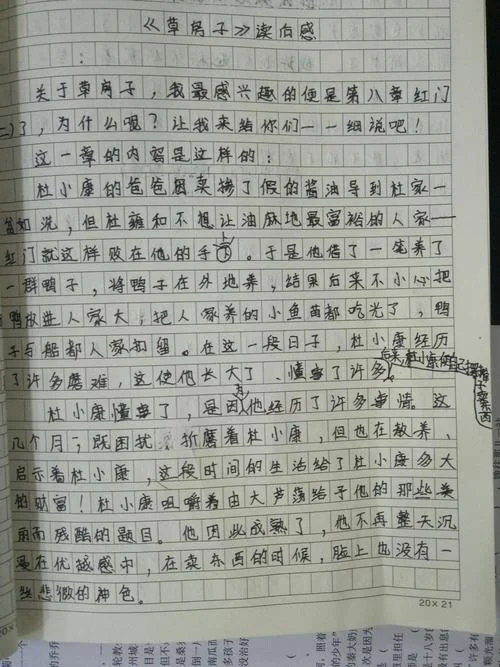 《草房子》读后感
:
关于草房子，我最感兴趣的便是第八章红门
二)了，为什么呢？让我来给你们一一细说吧！
这一章的内容是这样的：
杜小康的爸爸因卖掺了假的酱油导到杜家一
贫如洗，但杜雍和不想让油麻地最富裕的人家——
红门就这样败在他的手上。于是他借了一笔养了
一群鸭子，将鸭子在外地养，结果后来不小心把
鸭放进人家大，把人家养的小鱼苗都吃光了，鸭
子与船都人家扣留。在这一段日子，杜小康经历
了许多磨难，这使他长大了、懂事了许多。后来，杜小康
杜小康懂事了，是因为他经历了许多事情。这
几个月，既困扰、折磨着杜小康，但也在教养、
启示着杜小康，这段时间的生活给了杜小康多大
的财富！杜小康咀嚼着由大芦荡给予他的那些美
丽而残酷的题目。他因此成熟了，他不再整天沉
浸在优越感中，在卖东西的时候，脸上也没有一
丝悲微的神色。
20×21